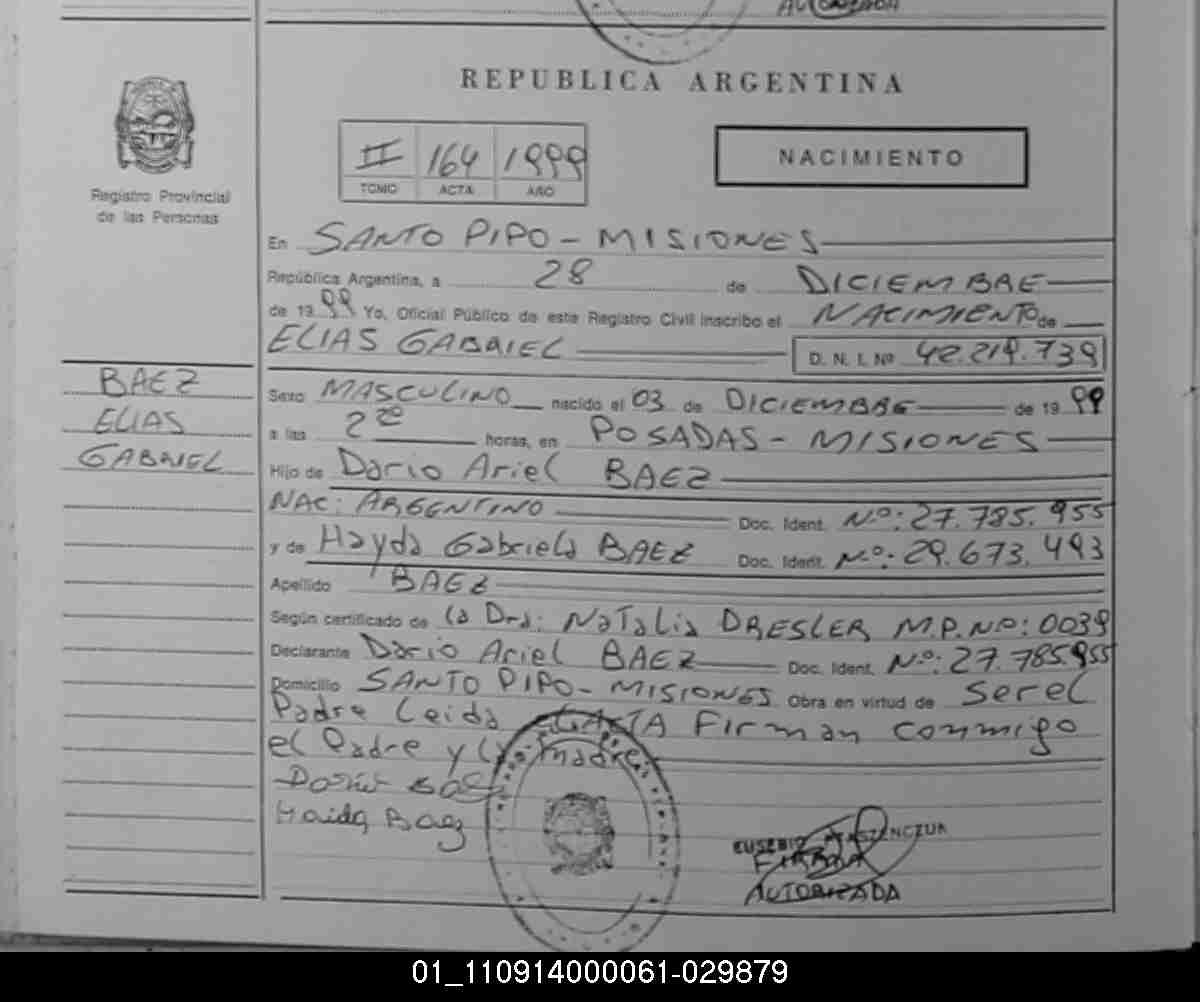 AUTORIZADA
REPUBLICA ARGENTINA
II 164 1999
TOMO ACTA AÑO
NACIMIENTO
Registro Provincial
de las Personas
En SANTO PIPO - MISIONES
República Argentina, a 28 de DICIEMBRE
de 1999 Yo, Oficial Público de este Registro Civil inscribo el NACIMIENTO de
ELIAS GABRIEL D. N. I. Nº 42.219.739
BAEZ
ELIAS
GABRIEL
Sexo MASCULINO nacido el 03 de DICIEMBRE de 1999
a las 2 horas, en POSADAS - MISIONES
Hijo de Dario Ariel BAEZ
NAC: ARGENTINO Doc. Ident. Nº: 27.785.955
y de Hayda Gabriela BAEZ Doc. Ident. Nº: 29.673.493
Apellido BAEZ
Según certificado de la Dra: NATALIA DRESLER M.P.Nº: 0039
Declarante Dario Ariel BAEZ Doc. Ident. Nº: 27.785.955
Domicilio SANTO PIPO - MISIONES Obra en virtud de ser el
Padre Leida el ACTA Firman conmigo
el Padre y la madre
Haida Baez
EUSEBIO
FIRMA
AUTORIZADA
01_110914000061-029879